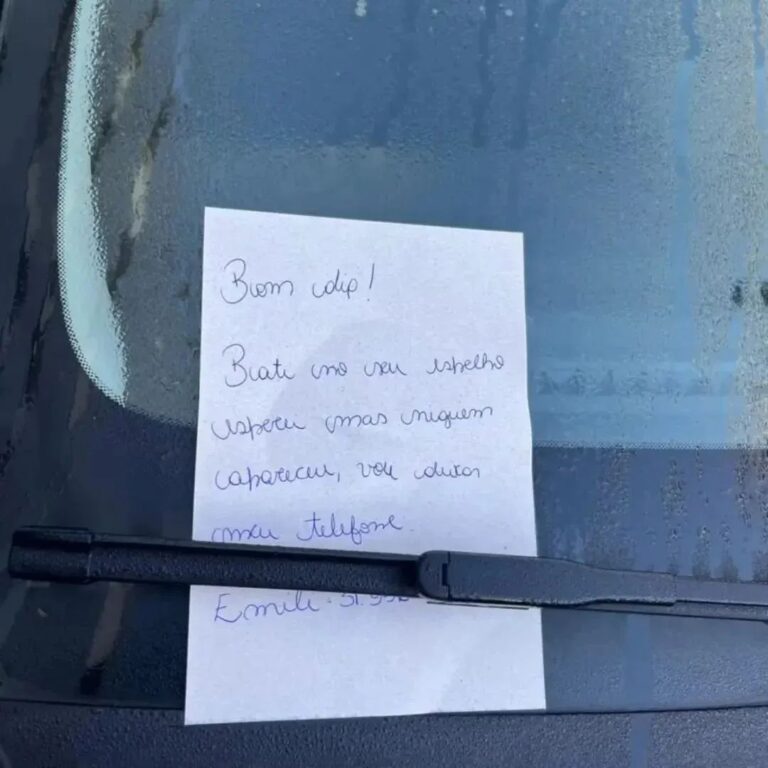 Bom dia!
Bati no seu espelho
esperei mas niguem
apareceu, vou deixar
meu telefone
Emili